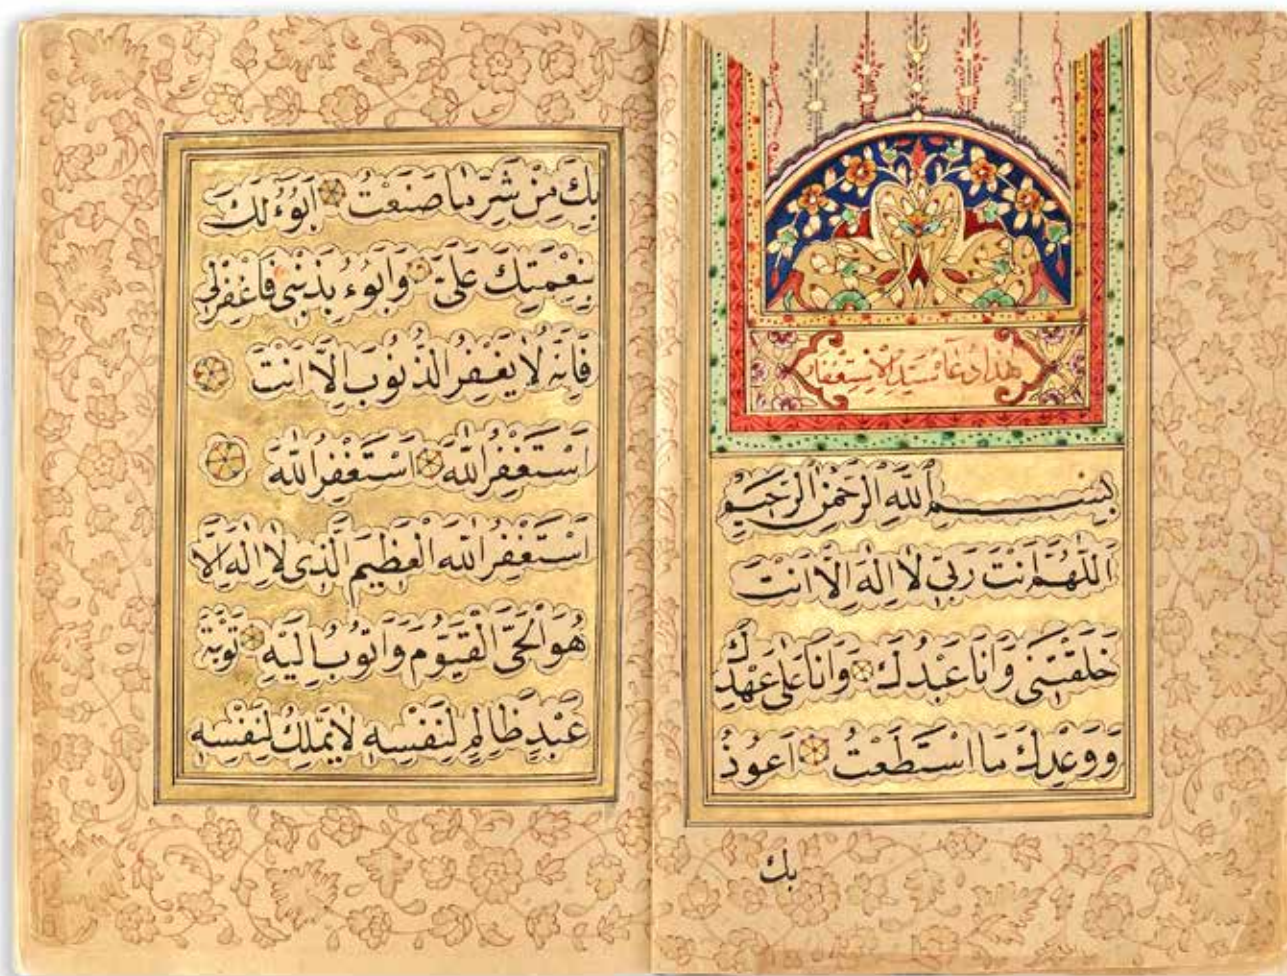 هٰذَا دُعَاءُ سَيِّدِ الْاِسْتِغْفَارِ
بِسْمِ اللّٰهِ الرَّحْمٰنِ الرَّحِيمِ
اَللّٰهُمَّ اَنْتَ رَبِّي لَا اِلٰهَ اِلَّا اَنْتَ
خَلَقْتَنِي وَاَنَا عَبْدُكَ وَاَنَا عَلٰى عَهْدِكَ
وَوَعْدِكَ مَا اسْتَطَعْتُ اَعُوذُ
بِكَ
بِكَ مِنْ شَرِّ مَا صَنَعْتُ اَبُوءُ لَكَ
بِنِعْمَتِكَ عَلَيَّ وَاَبُوءُ بِذَنْبِي فَاغْفِرْلِي
فَاِنَّهُ لَا يَغْفِرُ الذُّنُوبَ اِلَّا اَنْتَ
اَسْتَغْفِرُ اللّٰهَ اَسْتَغْفِرُ اللّٰهَ
اَسْتَغْفِرُ اللّٰهَ الْعَظِيمَ الَّذِي لَا اِلٰهَ اِلَّا
هُوَ الْحَيَّ الْقَيُّومَ وَاَتُوبُ اِلَيْهِ تَوْبَةَ
عَبْدٍ ظَالِمٍ لِنَفْسِهِ لَا يَمْلِكُ لِنَفْسِهِ